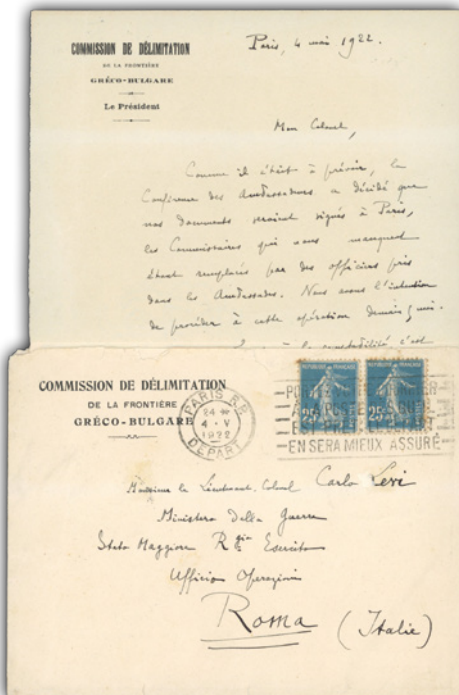 COMMISSION DE DÉLIMITATION
DE LA FRONTIÈRE
GRÉCO-BULGARE
Le Président
Paris, 4 mai 1922.
Mon Colonel,
Comme il était à prévoir, la
Conférence des Ambassadeurs a décidé que
nos documents seraient signés à Paris,
les Commissaires qui nous manquent
étant remplacés par des officiers pris
dans les Ambassades. Nous avons l'intention
de procéder à cette opération demain 5 mai.
la comptabilité c'est
COMMISSION DE DÉLIMITATION
DE LA FRONTIÈRE
GRÉCO-BULGARE
PARIS R.P.
24
4 - V
1922
DEPART
25c 25c
EN SERA MIEUX ASSURÉ
Monsieur le Lieutenant-Colonel Carlo Levi
Ministero della Guerra
Stato Maggiore R. Esercito
Ufficio Operazioni
Roma (Italie)